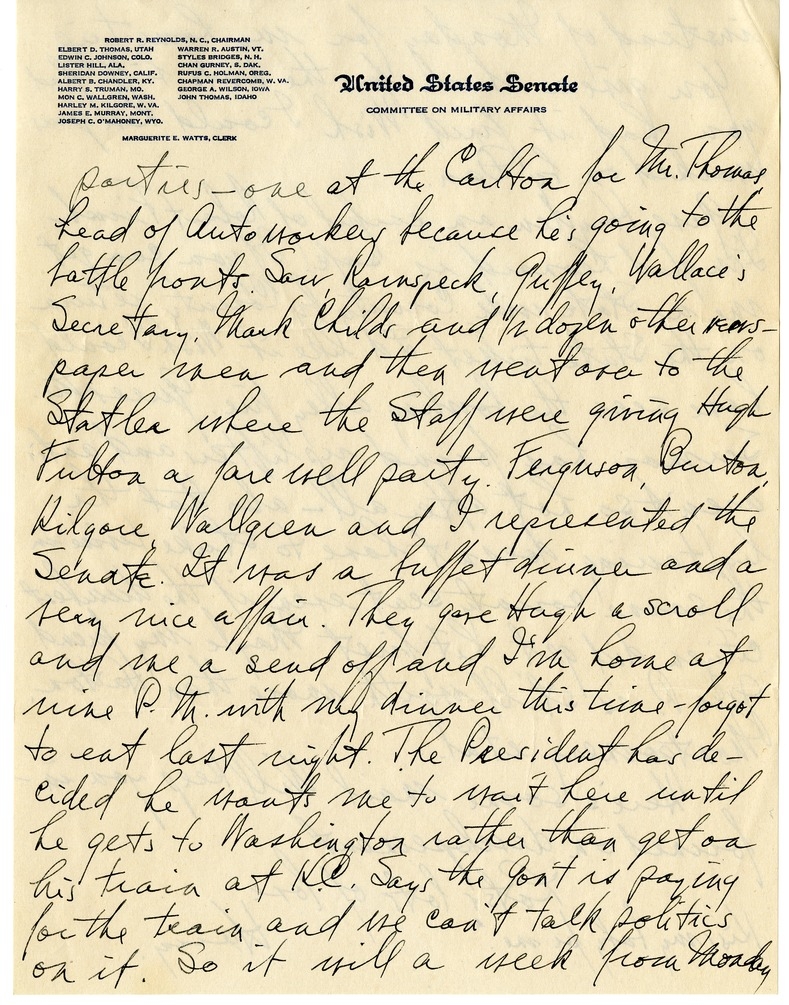 ROBERT R. REYNOLDS, N. C., CHAIRMAN
ELBERT D. THOMAS, UTAH
EDWIN C. JOHNSON, COLO.
LISTER HILL, ALA.
SHERIDAN DOWNEY, CALIF.
ALBERT B. CHANDLER, KY.
HARRY S. TRUMAN, MO.
MON C. WALLGREN, WASH.
HARLEY M. KILGORE, W. VA.
JAMES E. MURRAY, MONT.
JOSEPH C. O'MAHONEY, WYO.
WARREN R. AUSTIN, VT.
STYLES BRIDGES, N. H.
CHAN GURNEY, S. DAK.
RUFUS C. HOLMAN, OREG.
CHAPMAN REVERCOMB, W. VA.
GEORGE A. WILSON, IOWA
JOHN THOMAS, IDAHO
MARGUERITE E. WATTS, CLERK
United States Senate
COMMITTEE ON MILITARY AFFAIRS
parties—one at the Carlton for Mr. Thomas,
head of Autoworkers because he's going to the
battle fronts. Saw, Ramspeck, Guffey, Wallace's
Secretary, Mark Childs and ½ dozen other news-
paper men and then went over to the
Statler where the Staff were giving Hugh
Fulton a farewell party. Ferguson, Burton,
Kilgore, Wallgren and I represented the
Senate. It was a buffet dinner and a
very nice affair. They gave Hugh a scroll
and me a send off and I'm home at
nine P. M. with my dinner this time—forgot
to eat last night. The President has de-
cided he wants me to wait here until
he gets to Washington rather than get on
his train at K.C. Says the Gov't is paying
for the train and we can't talk politics
on it. So it will a week from Monday